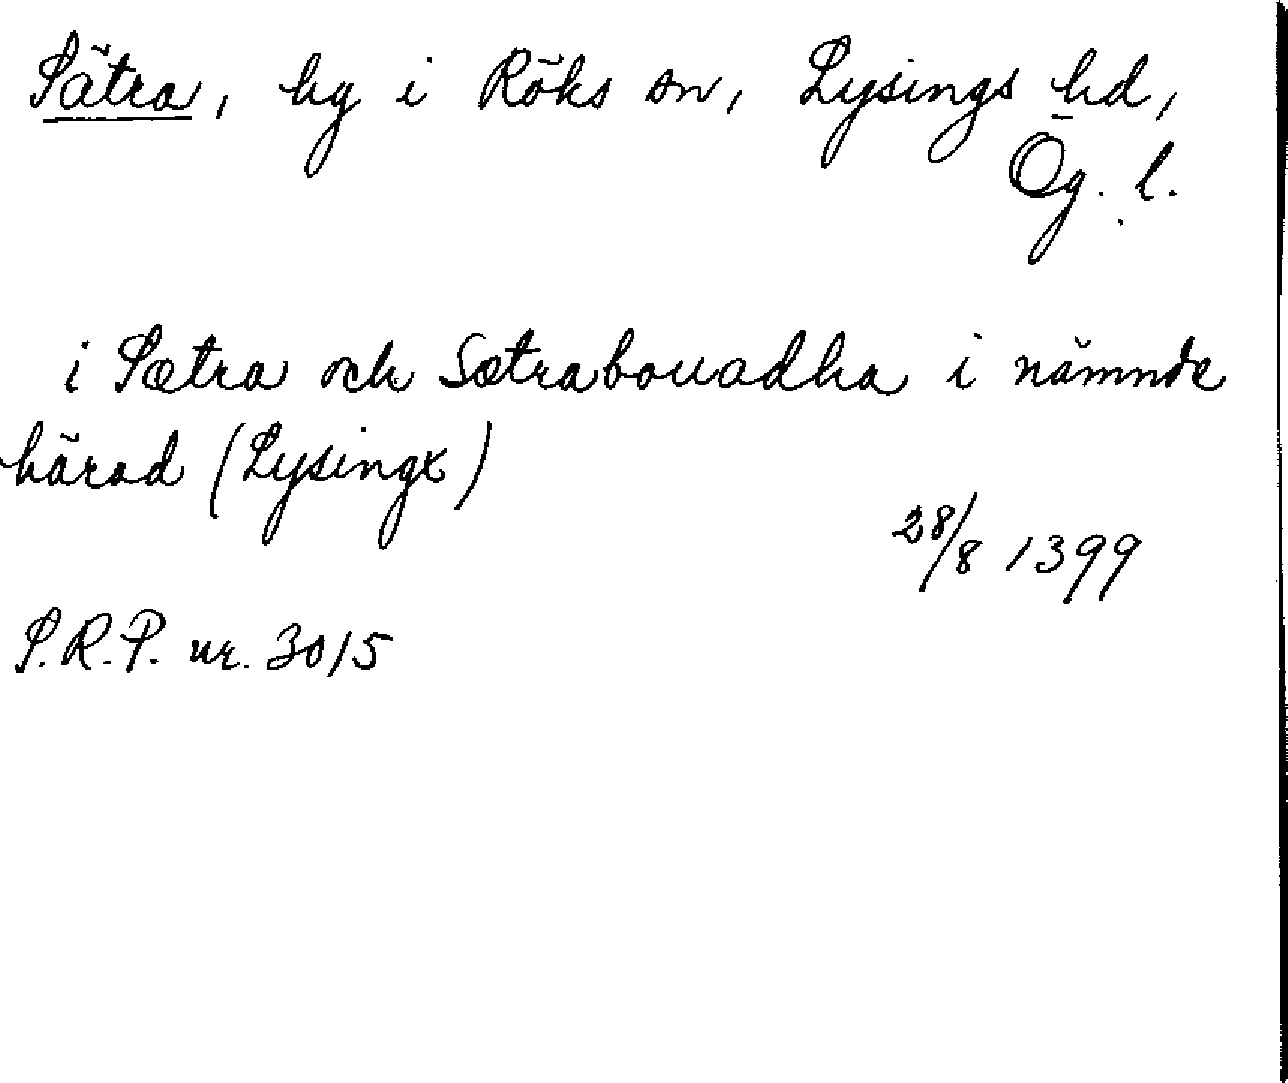 Sätra, by i Röks sn, Lysings hd,
Ög. l.
i Sætra och Sætrabouadha i nämnde
härad (Lysingx)
28/8 1399
S.R.P. nr. 3015